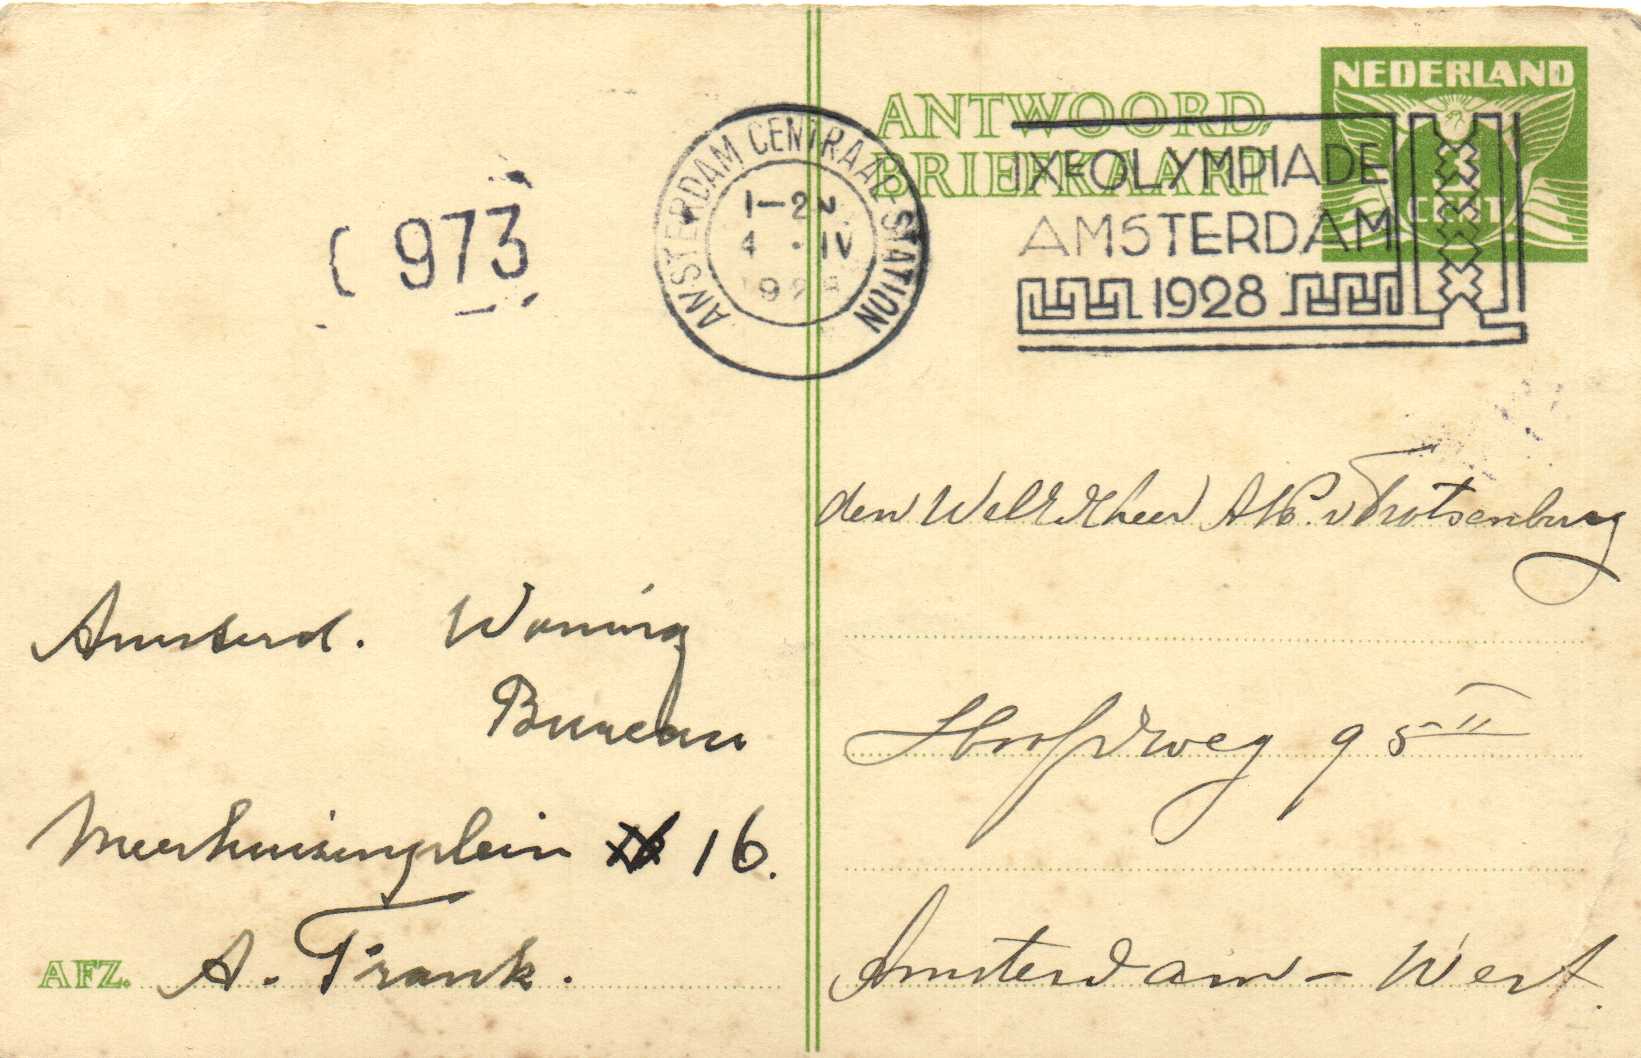 NEDERLAND
ANTWOORD
BRIEFKAART
CENT
AMSTERDAM CENTRAAL STATION
1-2 N
4 . IV
1928
IXE OLYMPIADE
AMSTERDAM
1928
973
Amsterd. Woning
Bureau
Meerhuizenplein 16.
AFZ. A. Frank.
den v Trotsenburg
Hoofdweg 95 II
Amsterdam - West.